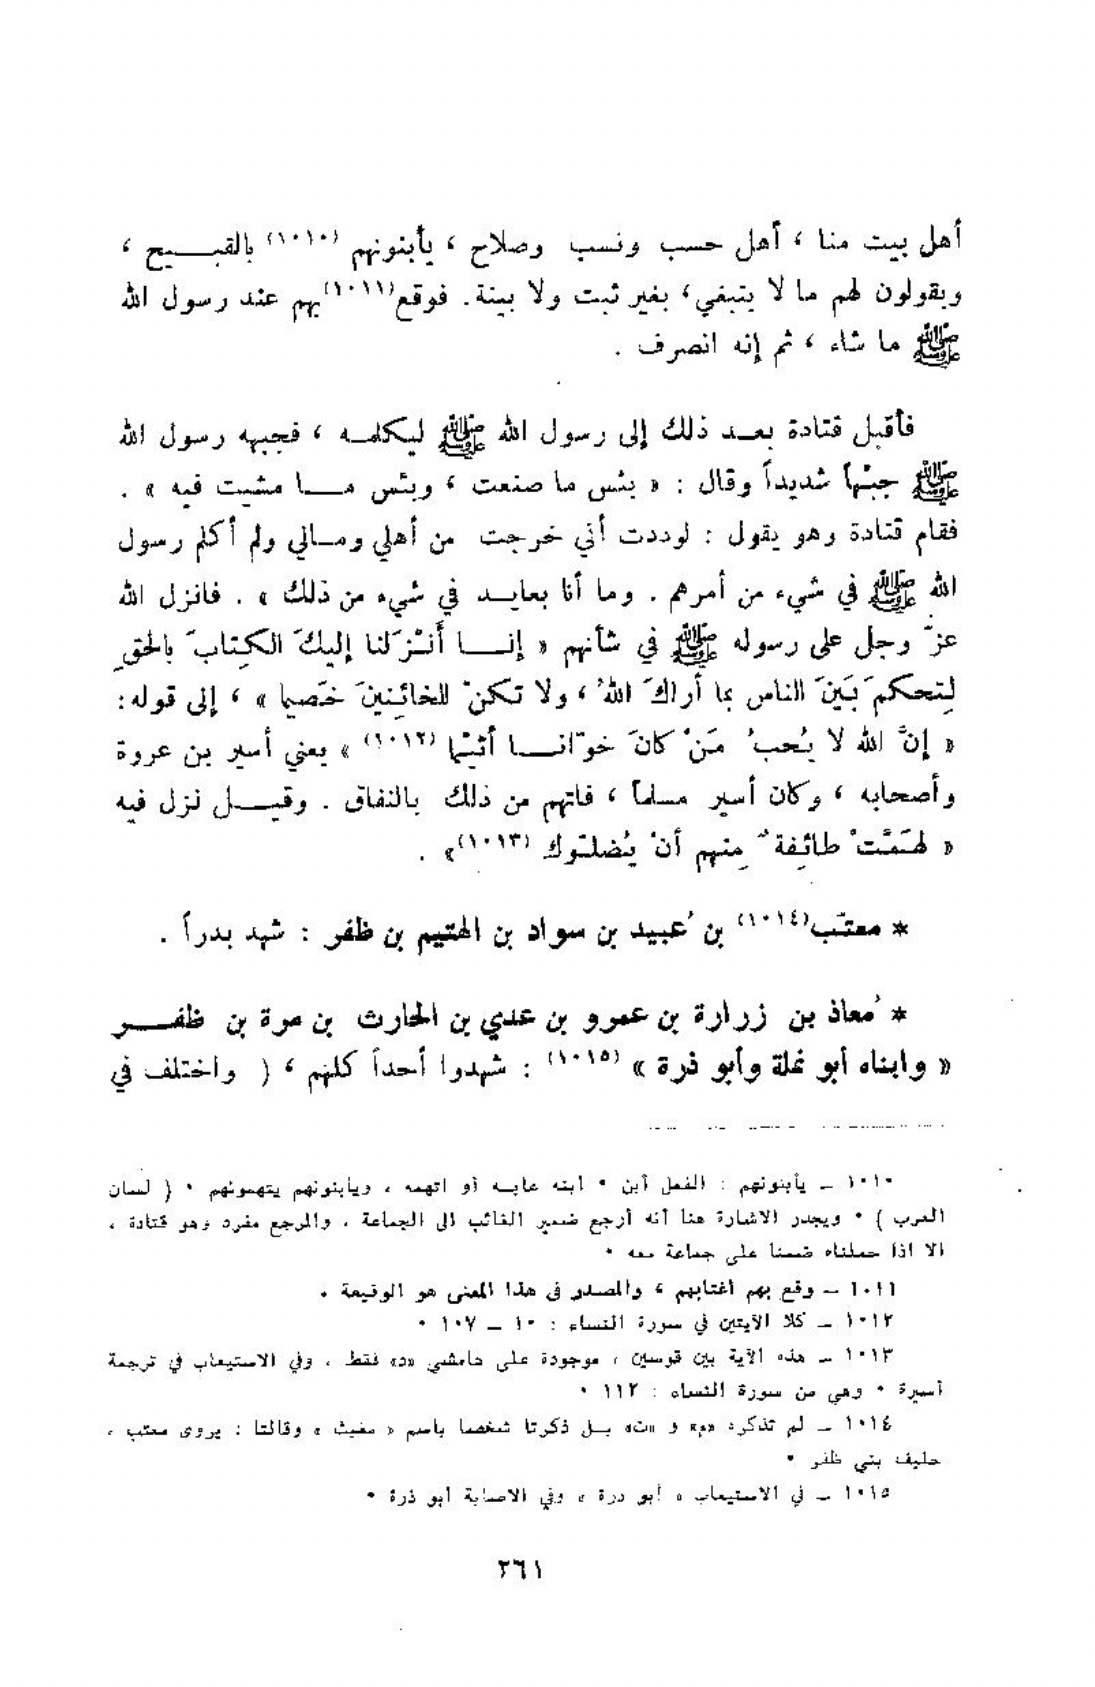 أهل بيت منا ، أهل حسب ونسب وصلاح ، يأبنونهم (١٠١٠) بالقبـــيح ،
ويقولون لهم ما لا ينبغي، بغير ثبت ولا بينة. فوقع(١٠١١)بهم عند رسول الله
ﷺ ما شاء ، ثم إنه انصرف .
فأقبل قتادة بعـد ذلك إلى رسول الله ﷺ ليكلمـه ، فجبهه رسول الله
ﷺ جبْهاً شديداً وقال : « بئس ما صنعت ، وبئس مـــا مشيت فيه » .
فقام قتادة وهو يقول : لوددت أني خرجت من أهلي ومـالي ولم أكلم رسول
الله ﷺ في شيء من أمرهم . وما أنا بعايـد في شيء من ذلك » . فانزل الله
عزّ وجل على رسوله ﷺ في شأنهم « إنـــا أَنْزَلنا إليكَ الكِتابَ بالحقِ
لِتحكمَ بَينَ الناس بما أراكَ اللهُ ، ولا تكنْ للخائِنينَ خَصيما » ، إلى قوله:
« إنَّ الله لا يُحبُ مَنْ كانَ خوّانـــا أثيْما (١٠١٢) » يعني أسير بن عروة
وأصحابه ، وكان أسير مسلماً ، فاتهم من ذلك بالنفاق . وقيـــل نزل فيه
« لهَمَّتْ طائِفةٌ مِنهم أنْ يُضلتوك (١٠١٣)» .
* معتّب(١٠١٤) بن عُبيد بن سواد بن الهتيم بن ظفر : شهد بدراً .
* مُعاذ بن زرارة بن عمرو بن عدي بن الحارث بن مرة بن ظفـــر
« وابناه أبو نملة وأبو ذرة » (١٠١٥) : شهدوا أحداً كلهم ، ( واختلف في
١٠١٠ ـ يأبنونهم : الفعل أبن • أبنه عابـه أو اتهمه ، ويأبنونهم يتهمونهم • ( لسان
العرب ) • ويجدر الاشارة هنا أنه أرجع ضمير الغائب الى الجماعة ، والمرجع مفرد وهو قتادة ،
الا اذا حملناه ضمنا على جماعة معه •
١٠١١ ـ وقع بهم اغتابهم ، والمصدر في هذا المعنى هو الوقيعة .
١٠١٢ ـ كلا الآيتين في سورة النساء : ١٠ ـ ١٠٧ •
١٠١٣ ـ هذه الآية بين قوسين ، موجودة على هامشي «د» فقط ، وفي الاستيعاب في ترجمة
أسيرة • وهي من سورة النساء : ١١٢ •
١٠١٤ ـ لم تذكره «م» و «ت» بـل ذكرتا شخصا باسم « مغيث » وقالتا : يروى معتب ،
حليف بني ظفر •
١٠١٥ ـ في الاستيعاب « أبو درة » وفي الاصابة أبو ذرة •
٢٦١